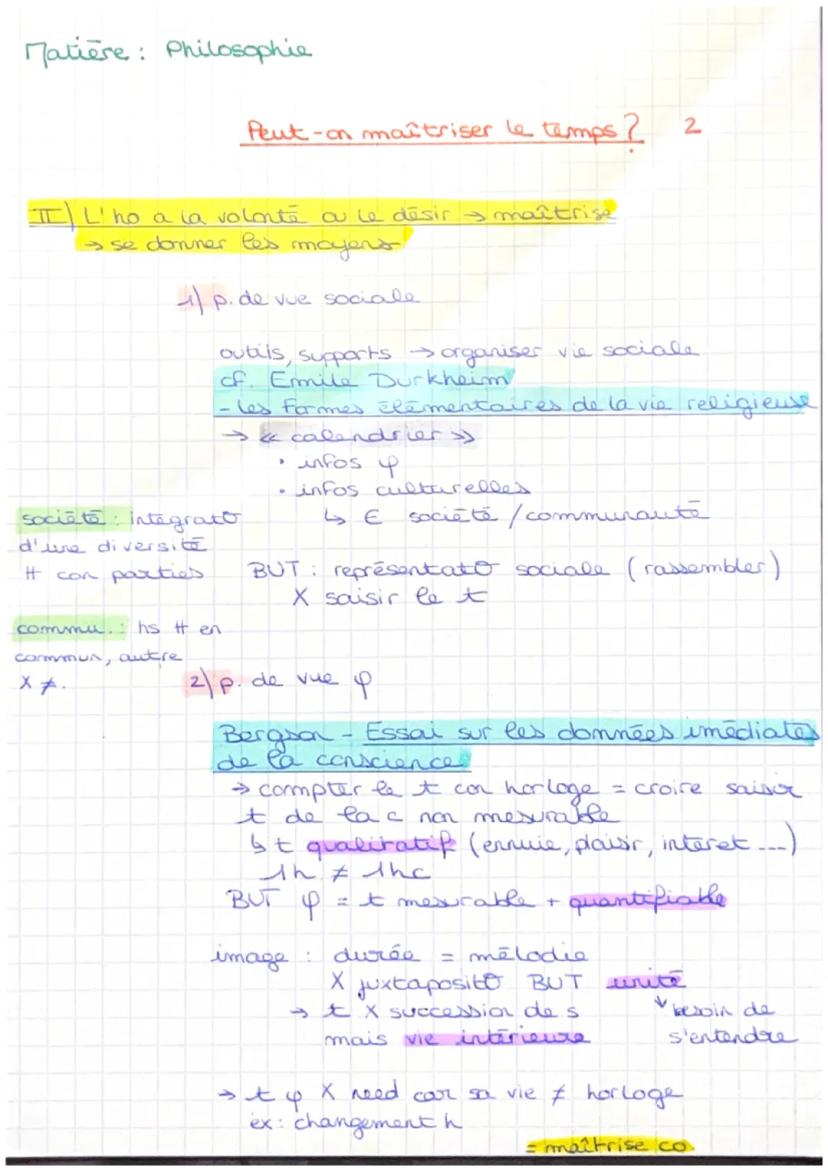 Matière : Philosophie
Peut-on maîtriser le temps ? 2
II) L'ho a la volonté ou le désir → maîtrise
→ se donner les moyens
1) p. de vue sociale
outils, supports → organiser vie sociale
cf. Emile Durkheim
- les formes élémentaires de la vie religieuse
→ « calendrier »
• infos φ
• infos culturelles
↳ € société / communauté
société : intégratO
d'une diversité
# con parties
BUT : représentatO sociale (rassembler)
X saisir le t
commu. : hs # en
commun, autre
X ≠.
2) p. de vue φ
Bergson - Essai sur les données imédiates
de la conscience
→ compter le t con horloge = croire saisir
t de la c non mesurable
↳ t qualitatif (ennuie, plaisir, intéret ...)
1h ≠ 1hc
BUT φ = t mesurable + quantifiable
image : durée = mélodie
X juxtapositO BUT unité
→ t X succession de s
mais vie intérieure
↓ besoin de
s'entendre
→ t φ X need car sa vie ≠ horloge
ex : changement h
= maîtrise co.